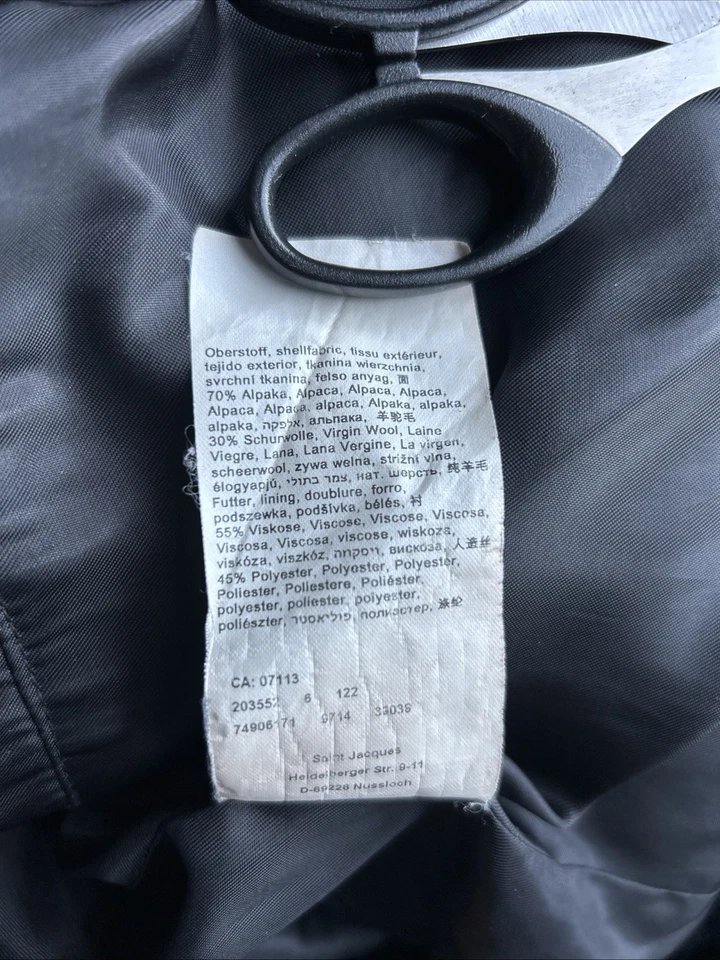 Oberstoff, shellfabric, tissu extérieur,
tejido exterior, tkanina wierzchnia,
svrchní tkanina, felso anyag, 面
70% Alpaka, Alpaca, Alpaca, Alpaca,
Alpaca, Alpaca, alpaca, Alpaka, alpaka,
alpaka, אלפקה, альпака, 羊驼毛
30% Schurwolle, Virgin Wool, Laine
Viegre, Lana, Lana Vergine, La virgen,
scheerwool, zywa welna, strižní vlna,
élogyapjú, צמר בתולי, нат. шерсть, 纯羊毛
Futter, lining, doublure, forro,
podszewka, podšívka, bélés, 衬
55% Viskose, Viscose, Viscose, Viscosa,
Viscosa, Viscosa, viscose, wiskoza,
viskóza, viszkóz, ויסקוזה, вискоза, 人造丝
45% Polyester, Polyester, Polyester,
Poliester, Poliestere, Poliéster,
polyester, poliester, polyester,
poliészter, פוליאסטר, полиэстер, 涤纶
CA: 07113
203552 6 122
74906171 9714 33039
Saint Jacques
Heidelberger Str. 9-11
D-69226 Nussloch